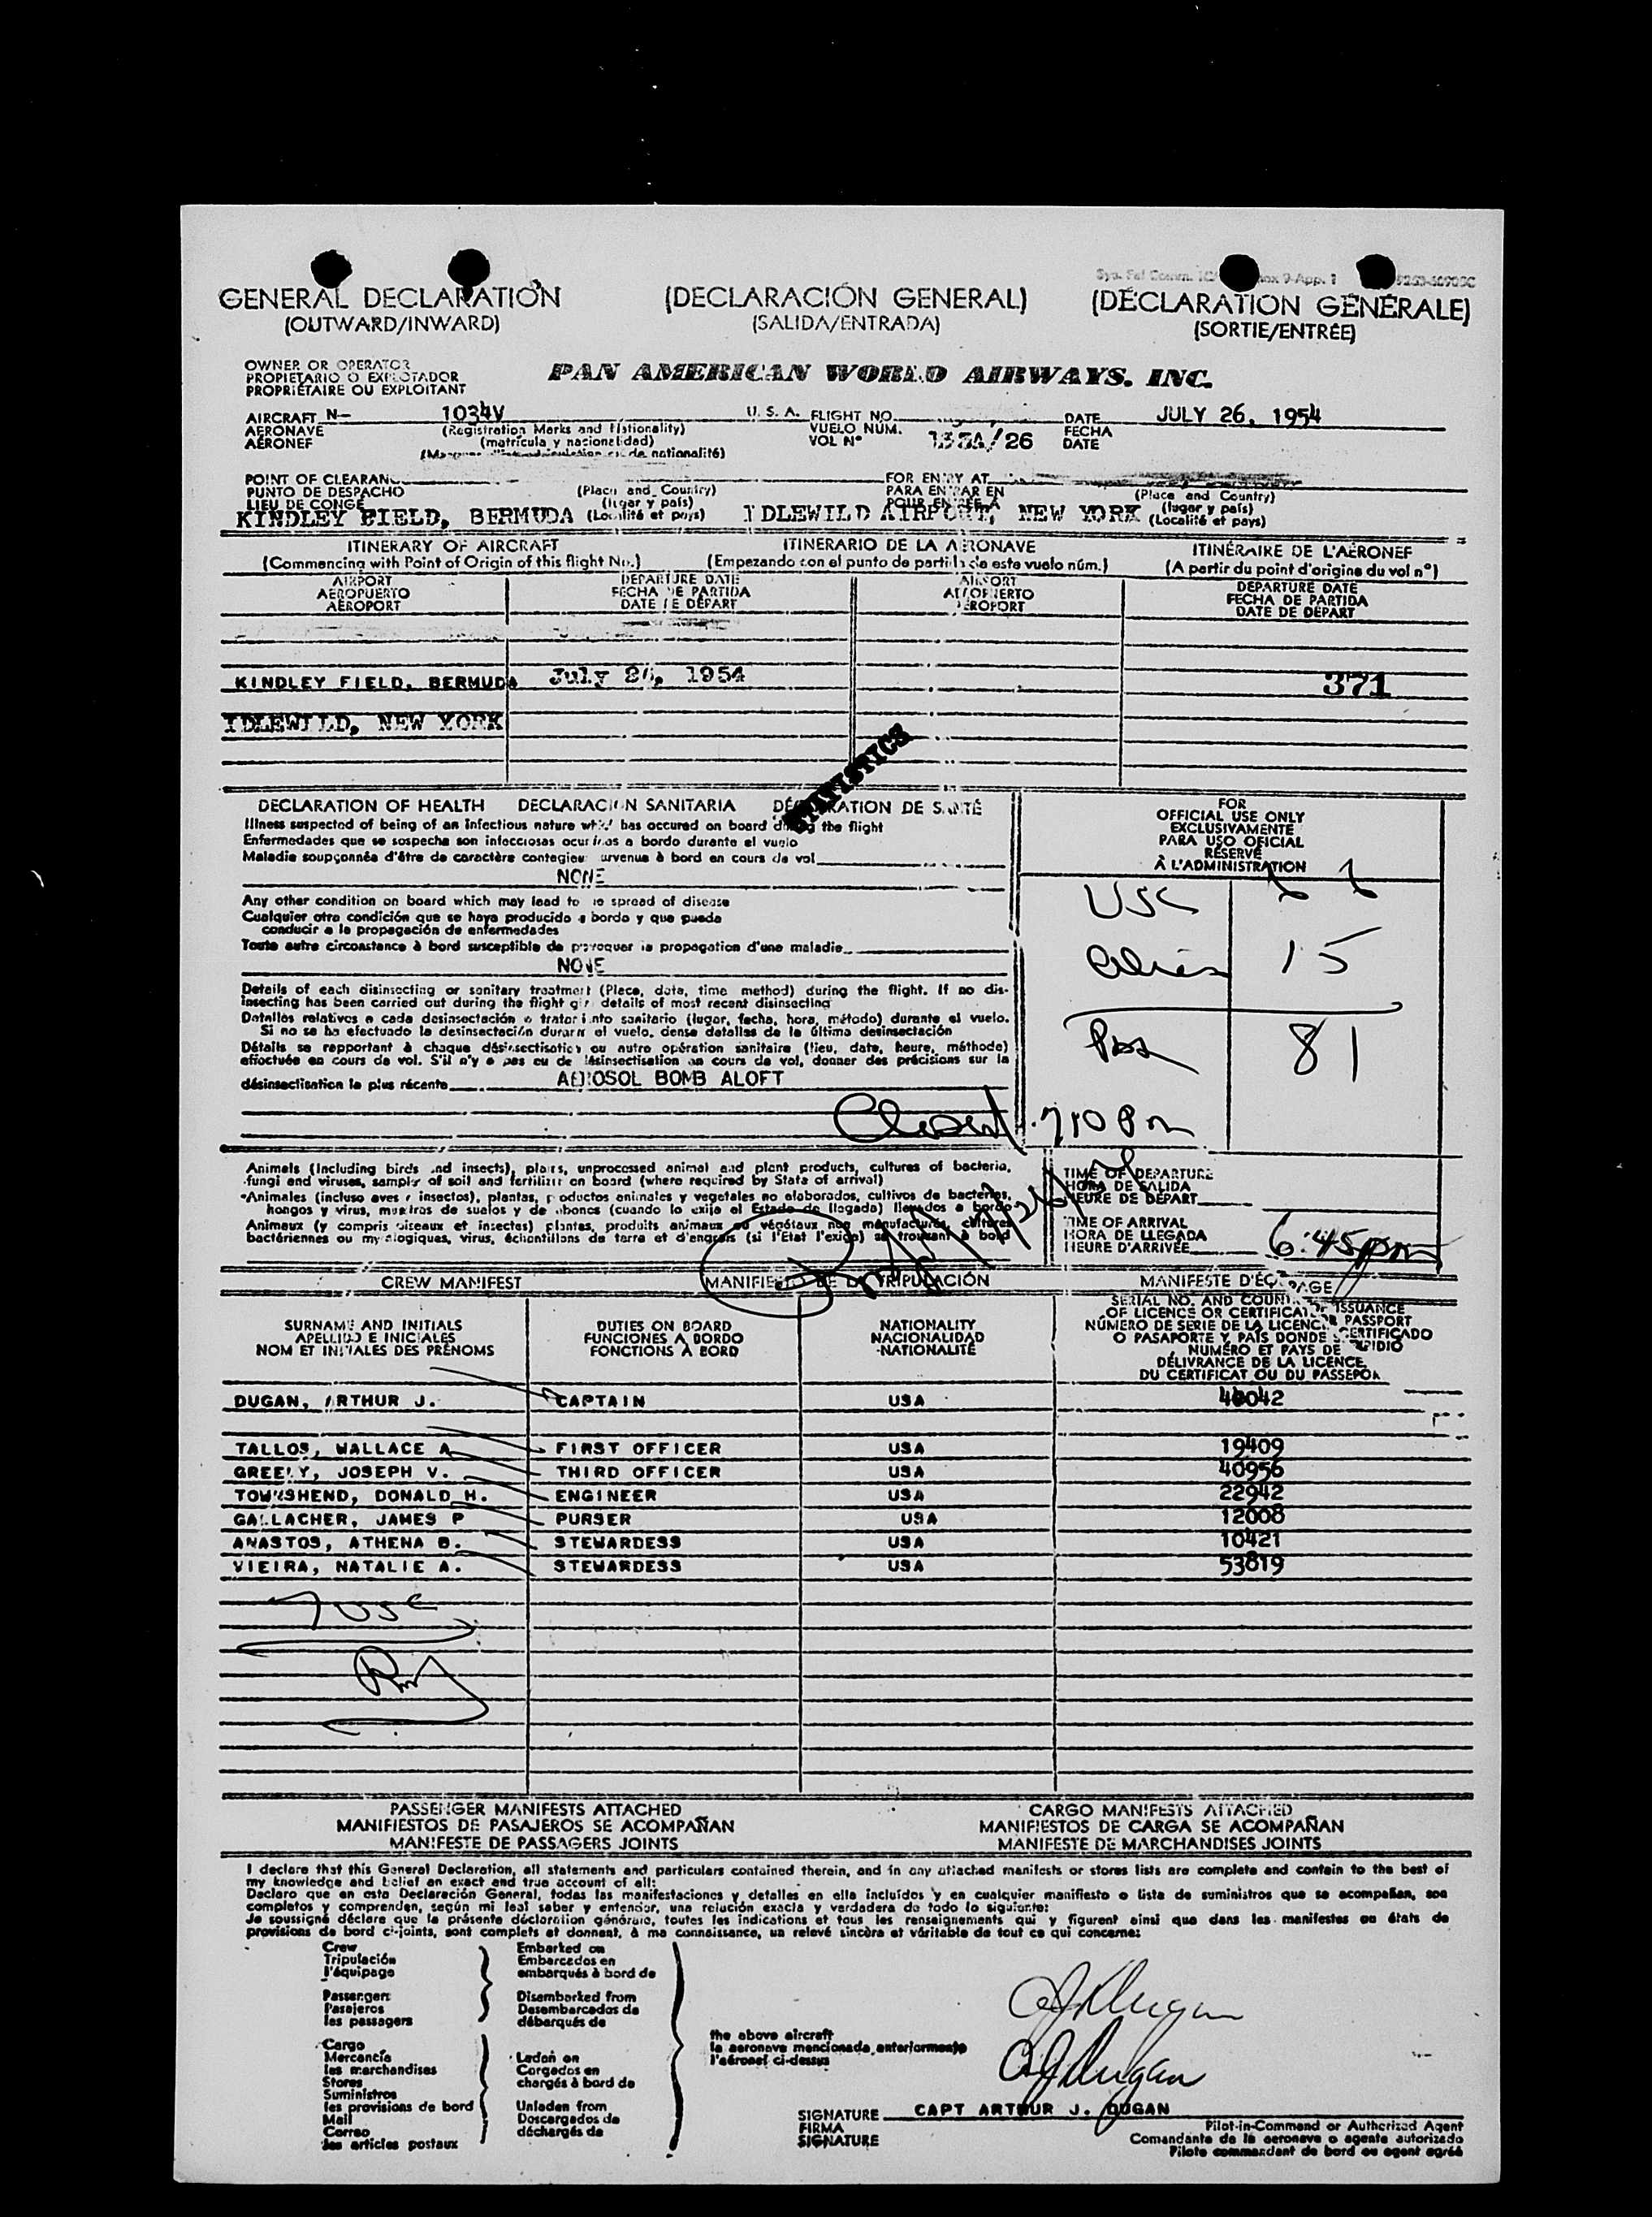 GENERAL DECLARATION
(OUTWARD/INWARD)
(DECLARACIÓN GENERAL)
(SALIDA/ENTRADA)
(DÉCLARATION GÉNÉRALE)
(SORTIE/ENTRÉE)
OWNER OR OPERATOR
PROPIETARIO O EXPLOTADOR
PROPRIÉTAIRE OU EXPLOITANT
PAN AMERICAN WORLD AIRWAYS. INC.
AIRCRAFT N- 1034V U. S. A. FLIGHT NO. DATE JULY 26, 1954
AERONAVE (Registration Marks and Nationality) VUELO NUM. FECHA
AÉRONEF (matrícula y nacionalidad) VOL Nº /26 DATE
POINT OF CLEARANCE FOR ENTRY AT
PUNTO DE DESPACHO (Place and Country) PARA ENTRAR EN (Place and Country)
LIEU DE CONGÉ (lugar y país) POUR ENTRÉE À (lugar y país)
KINDLEY FIELD, BERMUDA (Localité et pays) IDLEWILD AIRPORT, NEW YORK (Localité et pays)
ITINERARY OF AIRCRAFT ITINERARIO DE LA AERONAVE ITINÉRAIRE DE L'AÉRONEF
(Commencing with Point of Origin of this flight No.) (Empezando con el punto de partida de este vuelo núm.) (A partir du point d'origine du vol nº)
AIRPORT DEPARTURE DATE AIRPORT DEPARTURE DATE
AEROPUERTO FECHA DE PARTIDA AEROPUERTO FECHA DE PARTIDA
AÉROPORT DATE DE DÉPART AÉROPORT DATE DE DÉPART
KINDLEY FIELD, BERMUDA July 26, 1954 371
IDLEWILD, NEW YORK
STATISTICS
DECLARATION OF HEALTH DECLARACIÓN SANITARIA DÉCLARATION DE SANTÉ
Illness suspected of being of an infectious nature which has occured on board during the flight
Enfermedades que se sospecha son infecciosas ocurridas a bordo durante el vuelo
Maladie soupçonnée d'être de caractère contagieux survenue à bord en cours de vol
NONE
Any other condition on board which may lead to the spread of disease
Cualquier otra condición que se haya producido a bordo y que pueda
conducir a la propagación de enfermedades
Toute autre circonstance à bord susceptible de provoquer la propagation d'une maladie
NONE
Details of each disinsecting or sanitary treatment (Place, date, time method) during the flight. If no dis-
insecting has been carried out during the flight give details of most recent disinsecting
Detalles relativos a cada desinsectación o tratamiento sanitario (lugar, fecha, hora, método) durante el vuelo.
Si no se ha efectuado la desinsectación durante el vuelo, dense detalles de la última desinsectación
Détails se rapportant à chaque désinsectisation ou autre opération sanitaire (lieu, date, heure, méthode)
effectuée en cours de vol. S'il n'y a pas eu de désinsectisation en cours de vol, donner des précisions sur la
désinsectisation la plus récente
AEROSOL BOMB ALOFT
FOR
OFFICIAL USE ONLY
EXCLUSIVAMENTE
PARA USO OFICIAL
RESERVÉ
À L'ADMINISTRATION
USC
Aliens 15
Pass 81
7:10 Pm
Animals (Including birds and insects), plants, unprocessed animal and plant products, cultures of bacteria,
fungi and viruses, samples of soil and fertilizer on board (where required by State of arrival)
Animales (incluso aves e insectos), plantas, productos animales y vegetales no elaborados, cultivos de bacterias,
hongos y virus, muestras de suelos y de abonos (cuando lo exija el Estado de llegada) llevados a bordo
Animaux (y compris oiseaux et insectes) plantes, produits animaux ou végétaux non manufacturés, cultures
bactériennes ou mycologiques, virus, échantillons de terre et d'engrais (si l'Etat l'exige) se trouvant à bord
TIME OF DEPARTURE
HORA DE SALIDA
HEURE DE DÉPART
TIME OF ARRIVAL
HORA DE LLEGADA
HEURE D'ARRIVÉE 6:45 pm
CREW MANIFEST MANIFIESTO DE LA TRIPULACIÓN MANIFESTE D'ÉQUIPAGE
SURNAME AND INITIALS
APELLIDO E INICIALES
NOM ET INITIALES DES PRÉNOMS
DUTIES ON BOARD
FUNCIONES A BORDO
FONCTIONS À BORD
NATIONALITY
NACIONALIDAD
NATIONALITÉ
SERIAL NO. AND COUNTRY OF ISSUANCE
OF LICENCE OR CERTIFICATE PASSPORT
NÚMERO DE SERIE DE LA LICENCIA CERTIFICADO
O PASAPORTE Y PAÍS DONDE EXPIDIÓ
NUMÉRO ET PAYS DE
DÉLIVRANCE DE LA LICENCE,
DU CERTIFICAT OU DU PASSEPORT
DUGAN, ARTHUR J. CAPTAIN USA 40042
TALLOS, WALLACE A FIRST OFFICER USA 19409
GREELY, JOSEPH V. THIRD OFFICER USA 40956
TOWNSHEND, DONALD H. ENGINEER USA 22942
GALLACHER, JAMES P PURSER USA 12008
ANASTOS, ATHENA B. STEWARDESS USA 10421
VIEIRA, NATALIE A. STEWARDESS USA 53819
7 USC
PASSENGER MANIFESTS ATTACHED CARGO MANIFESTS ATTACHED
MANIFIESTOS DE PASAJEROS SE ACOMPAÑAN MANIFIESTOS DE CARGA SE ACOMPAÑAN
MANIFESTE DE PASSAGERS JOINTS MANIFESTE DE MARCHANDISES JOINTS
I declare that this General Declaration, all statements and particulars contained therein, and in any attached manifests or stores lists are complete and contain to the best of
my knowledge and belief an exact and true account of all:
Declaro que en esta Declaración General, todas las manifestaciones y detalles en ella incluídos y en cualquier manifiesto o lista de suministros que se acompañan, son
completos y comprenden, según mi leal saber y entender, una relución exacta y verdadera de todo lo siguiente:
Je soussigné déclare que la présente déclaration générale, toutes les indications et tous les renseignements qui y figurent ainsi que dans les manifestes ou états de
provisions de bord ci-joints, sont complets et donnent, à ma connaissance, un relevé sincère et véritable de tout ce qui concerne:
Crew Embarked on
Tripulación Embarcados en
l'équipage embarqués à bord de
Passengers Disembarked from
Pasajeros Desembarcados de
les passagers débarqués de
Cargo
Mercancía Laden on
les marchandises Cargados en
Stores chargés à bord de
Suministros
les provisions de bord Unladen from
Mail Descargados de
Correo déchargés de
les articles postaux
the above aircraft
la aeronave mencionada anteriormente
l'aéronef ci-dessus
A J Dugan
A J Dugan
SIGNATURE CAPT ARTHUR J. DUGAN
FIRMA
SIGNATURE
Pilot-in-Command or Authorized Agent
Comandante de la aeronave o agente autorizado
Pilote commandant de bord ou agent agréé